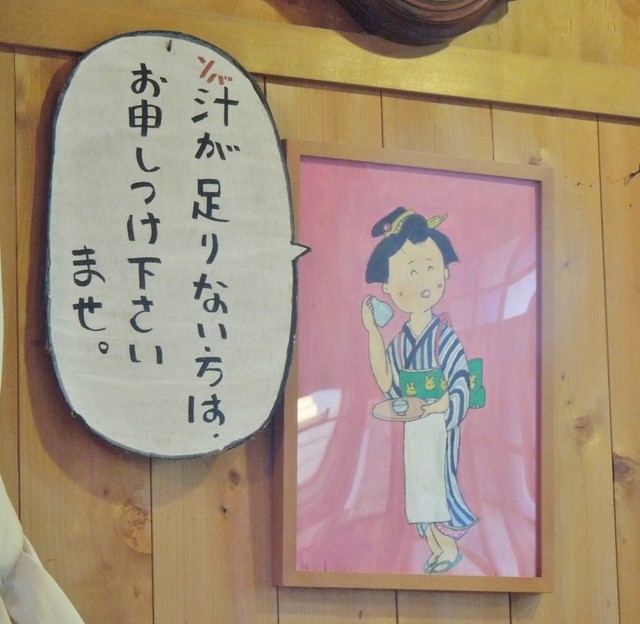 ソバ汁が足りない方は、
お申しつけ下さい
ませ。